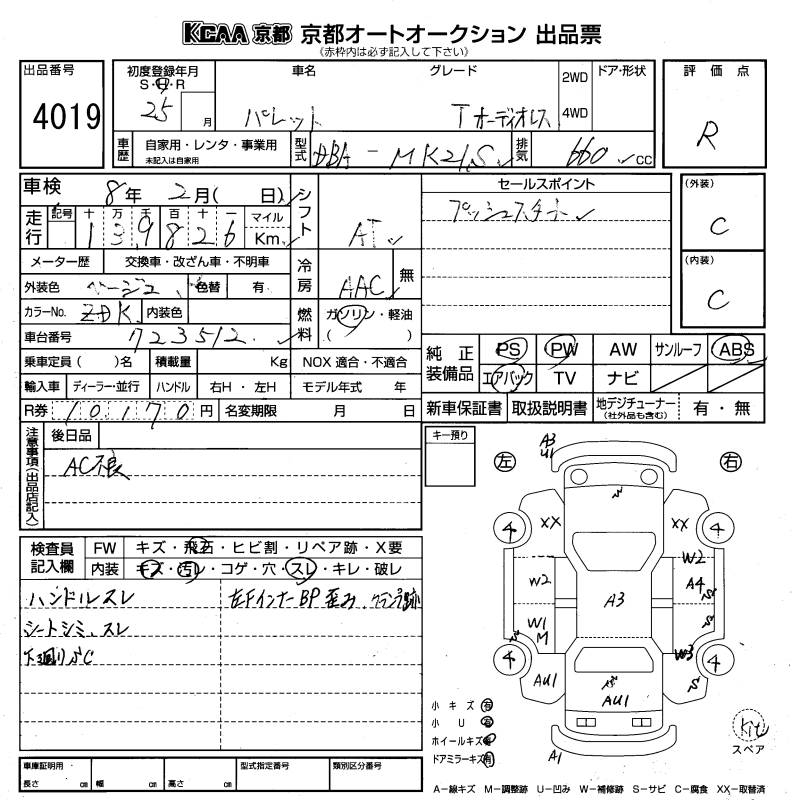 KCAA 京都 京都オートオークション 出品票
(赤枠内は必ず記入して下さい)
出品番号 4019
初度登録年月 S・H・R 25 月
車名 パレット
グレード T オーディオレス
2WD 4WD
ドア・形状
評価点 R
車歴 自家用・レンタ・事業用 未記入は自家用
型式 DBA-MK21S
排気 660 CC
車検 8年 2月( 日)
シフト AT
セールスポイント プッシュスタート
(外装) C
走行 記号 十 万 千 百 十 一 マイル
139826 Km
メーター歴 交換車・改ざん車・不明車
冷房 AAC 無
(内装) C
外装色 ベージュ 色替 有
カラーNo. ZDK 内装色
燃料 ガソリン・軽油 ( )
車台番号 723512
乗車定員( )名 積載量 Kg NOX 適合・不適合
純正装備品 PS PW AW サンルーフ ABS
エアバック TV ナビ
輸入車 ディーラー・並行 ハンドル 右H・左H モデル年式 年
R券 10170円 名変期限 月 日
新車保証書 取扱説明書 地デジチューナー (社外品も含む) 有・無
注意事項(出品店記入)
後日品
AC不良
キー預り
検査員記入欄
FW キズ・飛石・ヒビ割・リペア跡・X要
内装 キズ・汚レ・コゲ・穴・スレ・キレ・破レ
ハンドルスレ 左FインナーBP歪み、クランプ跡
シートシミ、スレ
下廻りC
左 右
A3
U1
4 XX XX 4
W2 W2
A4
A3
W1
M
W3
4 4
AU1 AU1
A1
小キズ 有
小U 有
ホイールキズ 有
ドアミラーキズ 有
Kit
スペア
車庫証明用 長さ cm 幅 cm 高さ cm
型式指定番号
類別区分番号
A−線キズ M−調整跡 U−凹み W−補修跡 S−サビ C−腐食 XX−取替済